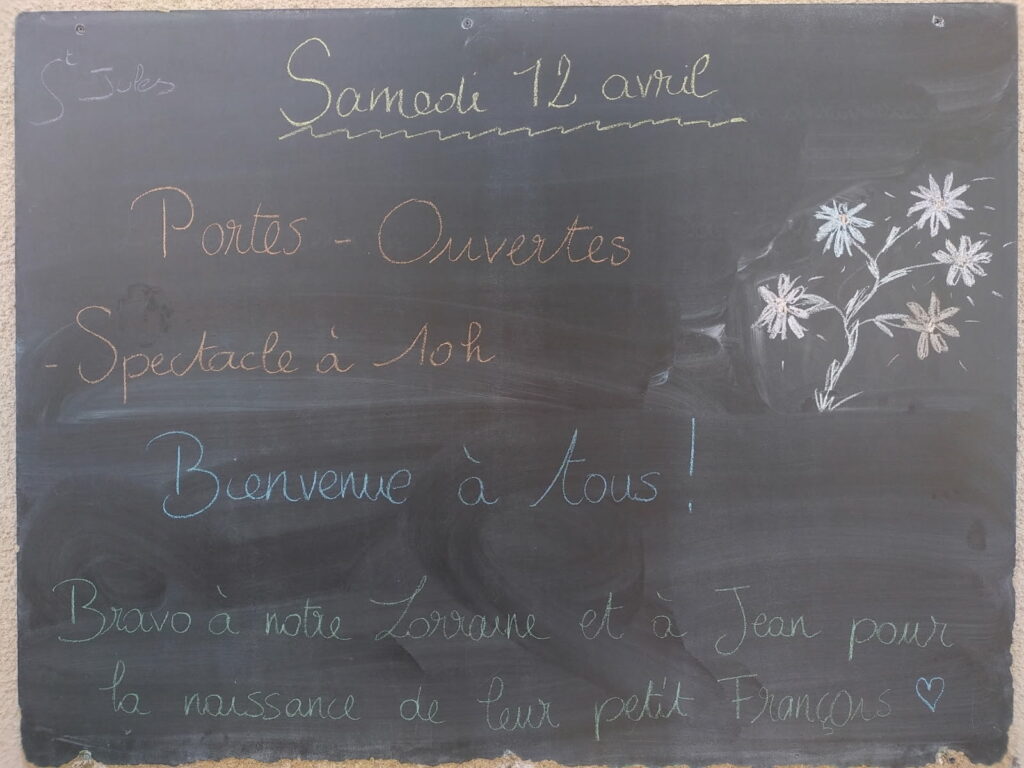 St Jules
Samedi 12 avril
Portes - Ouvertes
- Spectacle à 10h
Bienvenue à tous !
Bravo à notre Lorraine et à Jean pour
la naissance de leur petit François ♡